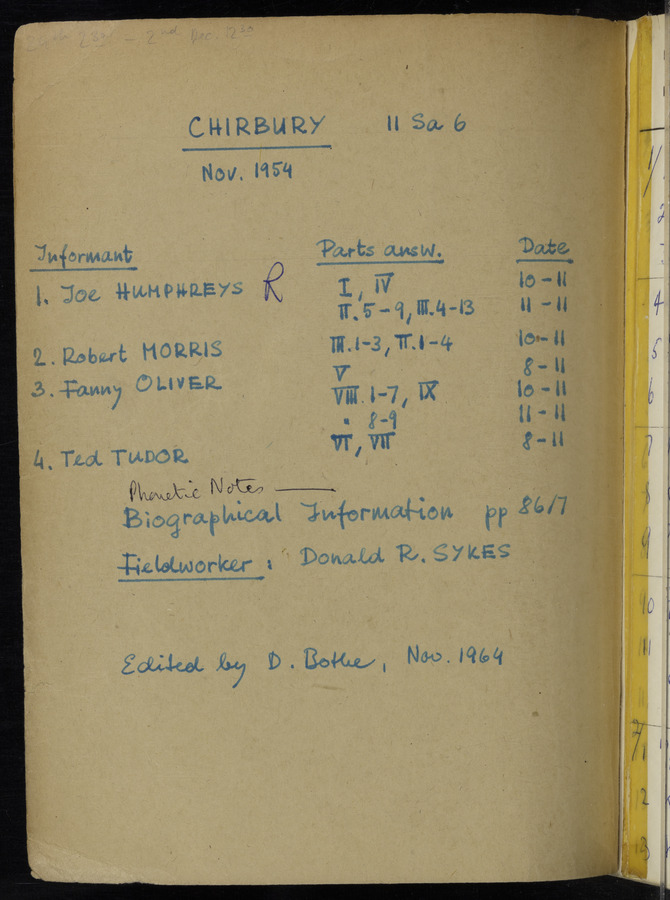 2nd Dec.
CHIRBURY 11 Sa 6
Nov. 1954
Informant Parts answ. Date
1. Joe HUMPHREYS R I, IV 10-11
II.5-9, III.4-13 11-11
2. Robert MORRIS III.1-3, II.1-4 10-11
V 8-11
3. Fanny OLIVER VIII.1-7, IX 10-11
" 8-9 11-11
4. Ted TUDOR VI, VII 8-11
Phonetic Notes —
Biographical Information pp 86/7
Fieldworker : Donald R. SYKES
Edited by D. Bothe, Nov. 1964
1/
2
4
5
6
7
8
9
10
11
2
3